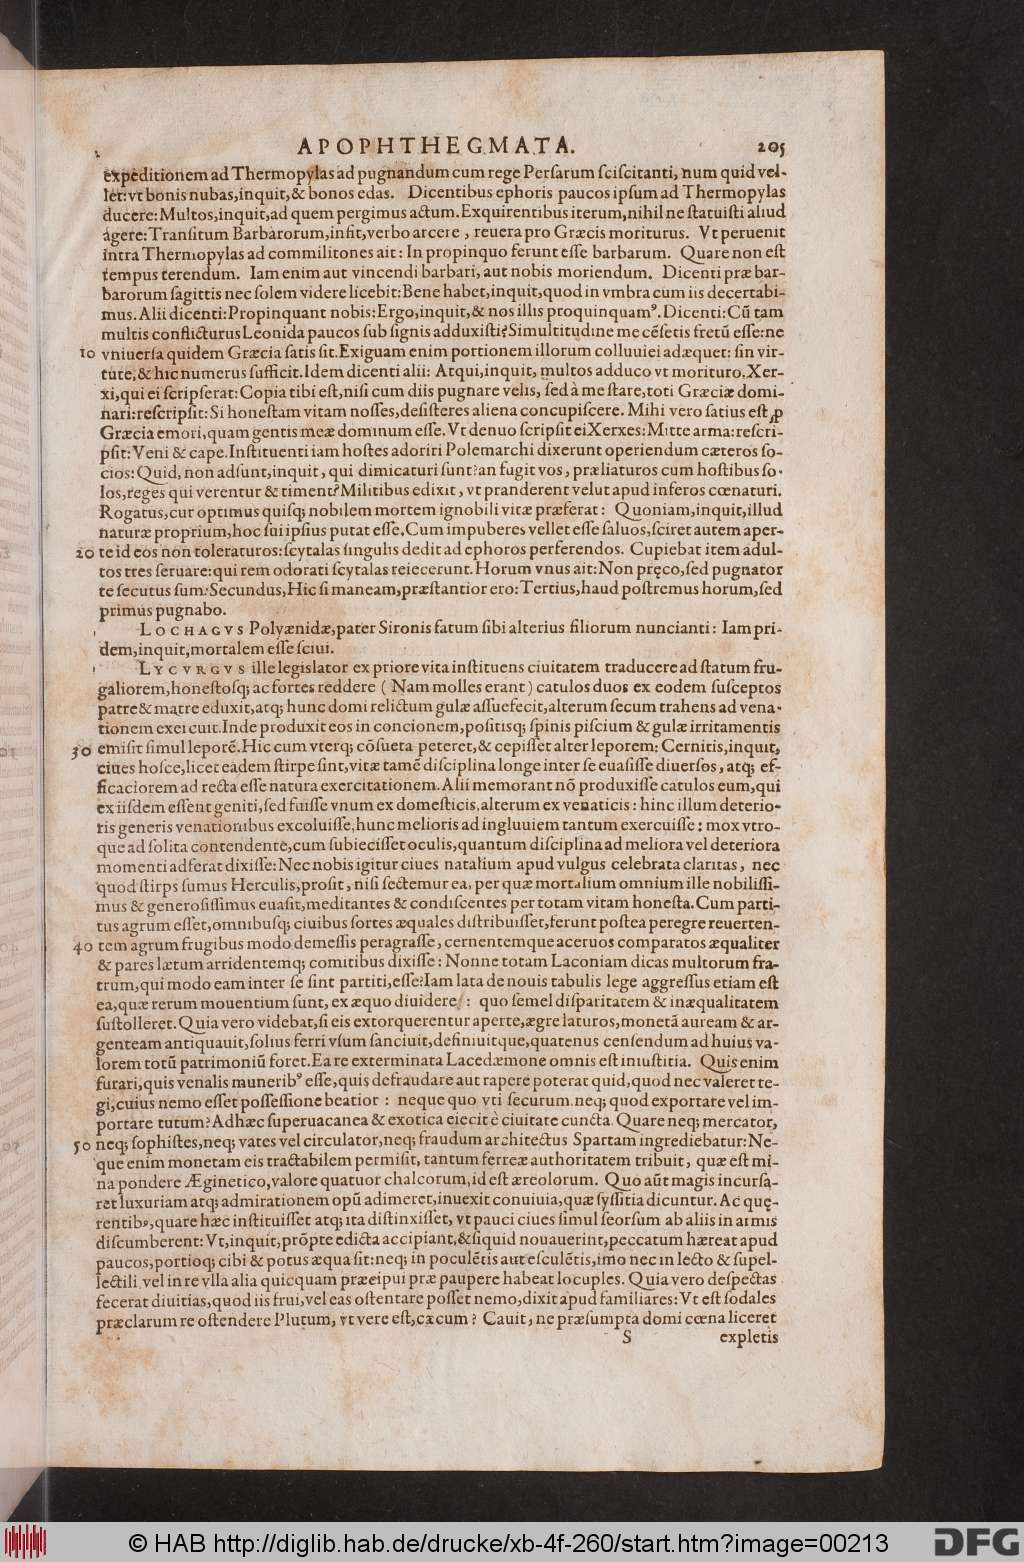 APOPHTHEGMATA. 205
expeditionem ad Thermopylas ad pugnandum cum rege Persarum sciscitanti, num quid vel-
let: vt bonis nubas, inquit, & bonos edas. Dicentibus ephoris paucos ipsum ad Thermopylas
ducere: Multos, inquit, ad quem pergimus actum. Exquirentibus iterum, nihil ne statuisti aliud
agere: Transitum Barbarorum, insit, verbo arcere, reuera pro Græcis moriturus. Vt peruenit
intra Thermopylas ad commilitones ait: In propinquo ferunt esse barbarum. Quare non est
tempus terendum. Iam enim aut vincendi barbari, aut nobis moriendum. Dicenti præ bar-
barorum sagittis nec solem videre licebit: Bene habet, inquit, quod in vmbra cum iis decertabi-
mus. Alii dicenti: Propinquant nobis: Ergo, inquit, & nos illis proquinquamꝰ. Dicenti: Cū tam
multis conflicturus Leonida paucos sub signis adduxisti? Si multitudine me cēsetis fretū esse: ne
10 vniuersa quidem Græcia satis sit. Exiguam enim portionem illorum colluuiei adæquet: sin vir-
tute, & hic numerus sufficit. Idem dicenti alii: Atqui, inquit, multos adduco vt morituro. Xer-
xi, qui ei scripserat: Copia tibi est, nisi cum diis pugnare velis, sed à me stare, toti Græciæ domi-
nari: rescripsit: Si honestam vitam nosses, desisteres aliena concupiscere. Mihi vero satius est, ꝓ
Græcia emori, quam gentis meæ dominum esse. Vt denuo scripsit ei Xerxes: Mitte arma: rescri-
psit: Veni & cape. Instituenti iam hostes adoriri Polemarchi dixerunt operiendum cæteros so-
cios: Quid, non adsunt, inquit, qui dimicaturi sunt? an fugit vos, præliaturos cum hostibus so-
los, reges qui verentur & timent? Militibus edixit, vt pranderent velut apud inferos cœnaturi.
Rogatus, cur optimus quisq; nobilem mortem ignobili vitæ præferat: Quoniam, inquit, illud
naturæ proprium, hoc sui ipsius putat esse. Cum impuberes vellet esse saluos, sciret autem aper-
20 te id eos non toleraturos: scytalas singulis dedit ad ephoros perferendos. Cupiebat item adul-
tos tres seruare: qui rem odorati scytalas reiecerunt. Horum vnus ait: Non pręco, sed pugnator
te secutus sum: Secundus, Hic si maneam, præstantior ero: Tertius, haud postremus horum, sed
primus pugnabo.
LOCHAGVS Polyænidæ, pater Sironis fatum sibi alterius filiorum nuncianti: Iam pri-
dem, inquit, mortalem esse sciui.
LYCVRGVS ille legislator ex priore vita instituens ciuitatem traducere ad statum fru-
galiorem, honestosq; ac fortes reddere ( Nam molles erant ) catulos duos ex eodem susceptos
patre & matre eduxit, atq; hunc domi relictum gulæ assuefecit, alterum secum trahens ad vena-
tionem exercuit. Inde produxit eos in concionem, positisq; spinis piscium & gulæ irritamentis
30 emisit simul leporē. Hic cum vterq; cōsueta peteret, & cepisset alter leporem: Cernitis, inquit,
ciues hosce, licet eadem stirpe sint, vitæ tamē disciplina longe inter se euasisse diuersos, atq; ef-
ficaciorem ad recta esse natura exercitationem. Alii memorant nō produxisse catulos eum, qui
ex iisdem essent geniti, sed fuisse vnum ex domesticis, alterum ex venaticis: hinc illum deterio-
ris generis venationibus excoluisse, hunc melioris ad ingluuiem tantum exercuisse: mox vtro-
que ad solita contendente, cum subiecisset oculis, quantum disciplina ad meliora vel deteriora
momenti adferat dixisse: Nec nobis igitur ciues natalium apud vulgus celebrata claritas, nec
quod stirps sumus Herculis, prosit, nisi sectemur ea, per quæ mortalium omnium ille nobilissi-
mus & generosissimus euasit, meditantes & condiscentes per totam vitam honesta. Cum parti-
tus agrum esset, omnibusq; ciuibus sortes æquales distribuisset, ferunt postea peregre reuerten-
40 tem agrum frugibus modo demessis peragrasse, cernentemque aceruos comparatos æqualiter
& pares lætum arridentemq; comitibus dixisse: Nonne totam Laconiam dicas multorum fra-
trum, qui modo eam inter se sint partiti, esse? Iam lata de nouis tabulis lege aggressus etiam est
ea, quæ rerum mouentium sunt, ex æquo diuidere: quo semel disparitatem & inæqualitatem
sustolleret. Quia vero videbat, si eis extorquerentur aperte, ægre laturos, monetā auream & ar-
genteam antiquauit, solius ferri vsum sanciuit, definiuitque, quatenus censendum ad huius va-
lorem totū patrimoniū foret. Ea re exterminata Lacedæmone omnis est iniustitia. Quis enim
furari, quis venalis muneribꝰ esse, quis defraudare aut rapere poterat quid, quod nec valeret te-
gi, cuius nemo esset possessione beatior: neque quo vti securum. neq; quod exportare vel im-
portare tutum? Adhæc superuacanea & exotica eiecit è ciuitate cuncta. Quare neq; mercator,
50 neq; sophistes, neq; vates vel circulator, neq; fraudum architectus Spartam ingrediebatur: Ne-
que enim monetam eis tractabilem permisit, tantum ferreæ authoritatem tribuit, quæ est mi-
na pondere Æginetico, valore quatuor chalcorum, id est æreolorum. Quo aūt magis incursa-
ret luxuriam atq; admirationem opū adimeret, inuexit conuiuia, quæ syssitia dicuntur. Ac quę-
rentibꝰ, quare hæc instituisset atq; ita distinxisset, vt pauci ciues simul seorsum ab aliis in armis
discumberent: Vt, inquit, prōpte edicta accipiant, & siquid nouauerint, peccatum hæreat apud
paucos, portioq; cibi & potus æqua sit: neq; in poculētis aut esculētis, imo nec in lecto & supel-
lectili vel in re vlla alia quicquam præcipui præ paupere habeat locuples. Quia vero despectas
fecerat diuitias, quod iis frui, vel eas ostentare posset nemo, dixit apud familiares: Vt est sodales
præclarum re ostendere Plutum, vt vere est, cæcum? Cauit, ne præsumpta domi cœna liceret
S expletis
© HAB http://diglib.hab.de/drucke/xb-4f-260/start.htm?image=00213
DFG